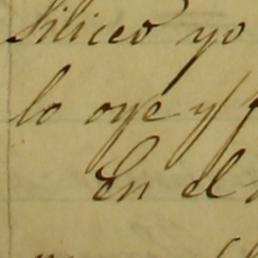 Siliceo yo
lo oye y
En el